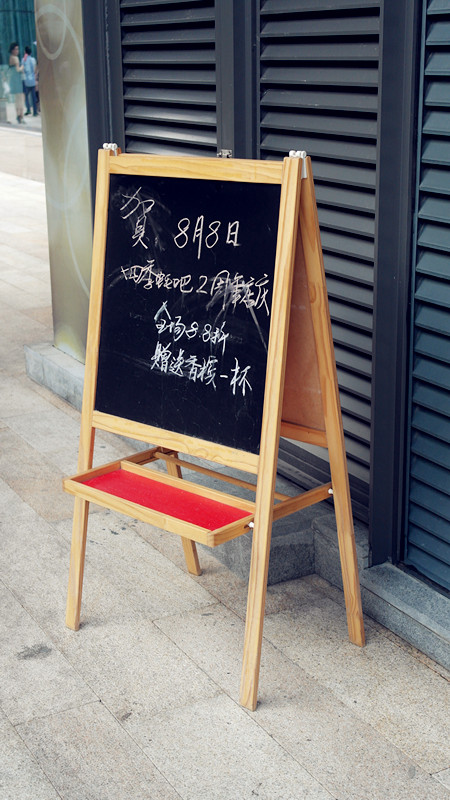 贺 8月8日
四季蚝吧2周年店庆
全场8.8折
赠送香槟一杯